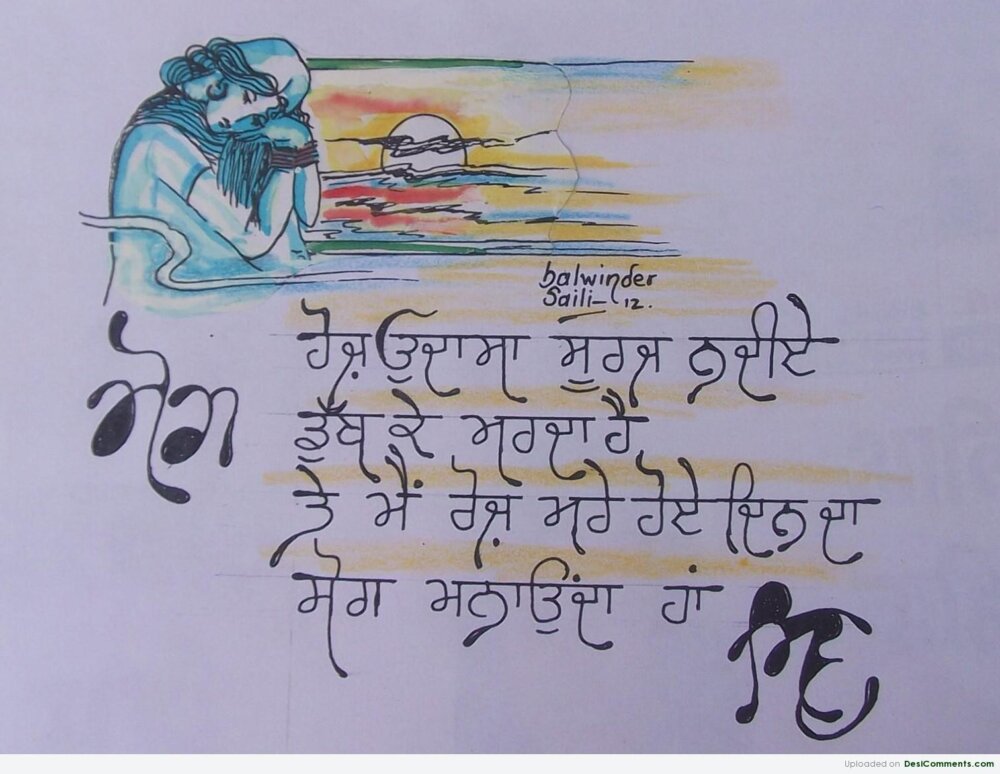 balwinder
Saili-12.
ਸੋਗ
ਰੋਜ਼ ਉਦਾਸਾ ਸੂਰਜ ਨਦੀਏ
ਡੁੱਬ ਕੇ ਮਰਦਾ ਹੈ
ਤੇ ਮੈਂ ਰੋਜ਼ ਮਰੇ ਹੋਏ ਦਿਨ ਦਾ
ਸੋਗ ਮਨਾਉਂਦਾ ਹਾਂ
ਸ਼ਿਵ
Uploaded on DesiComments.com